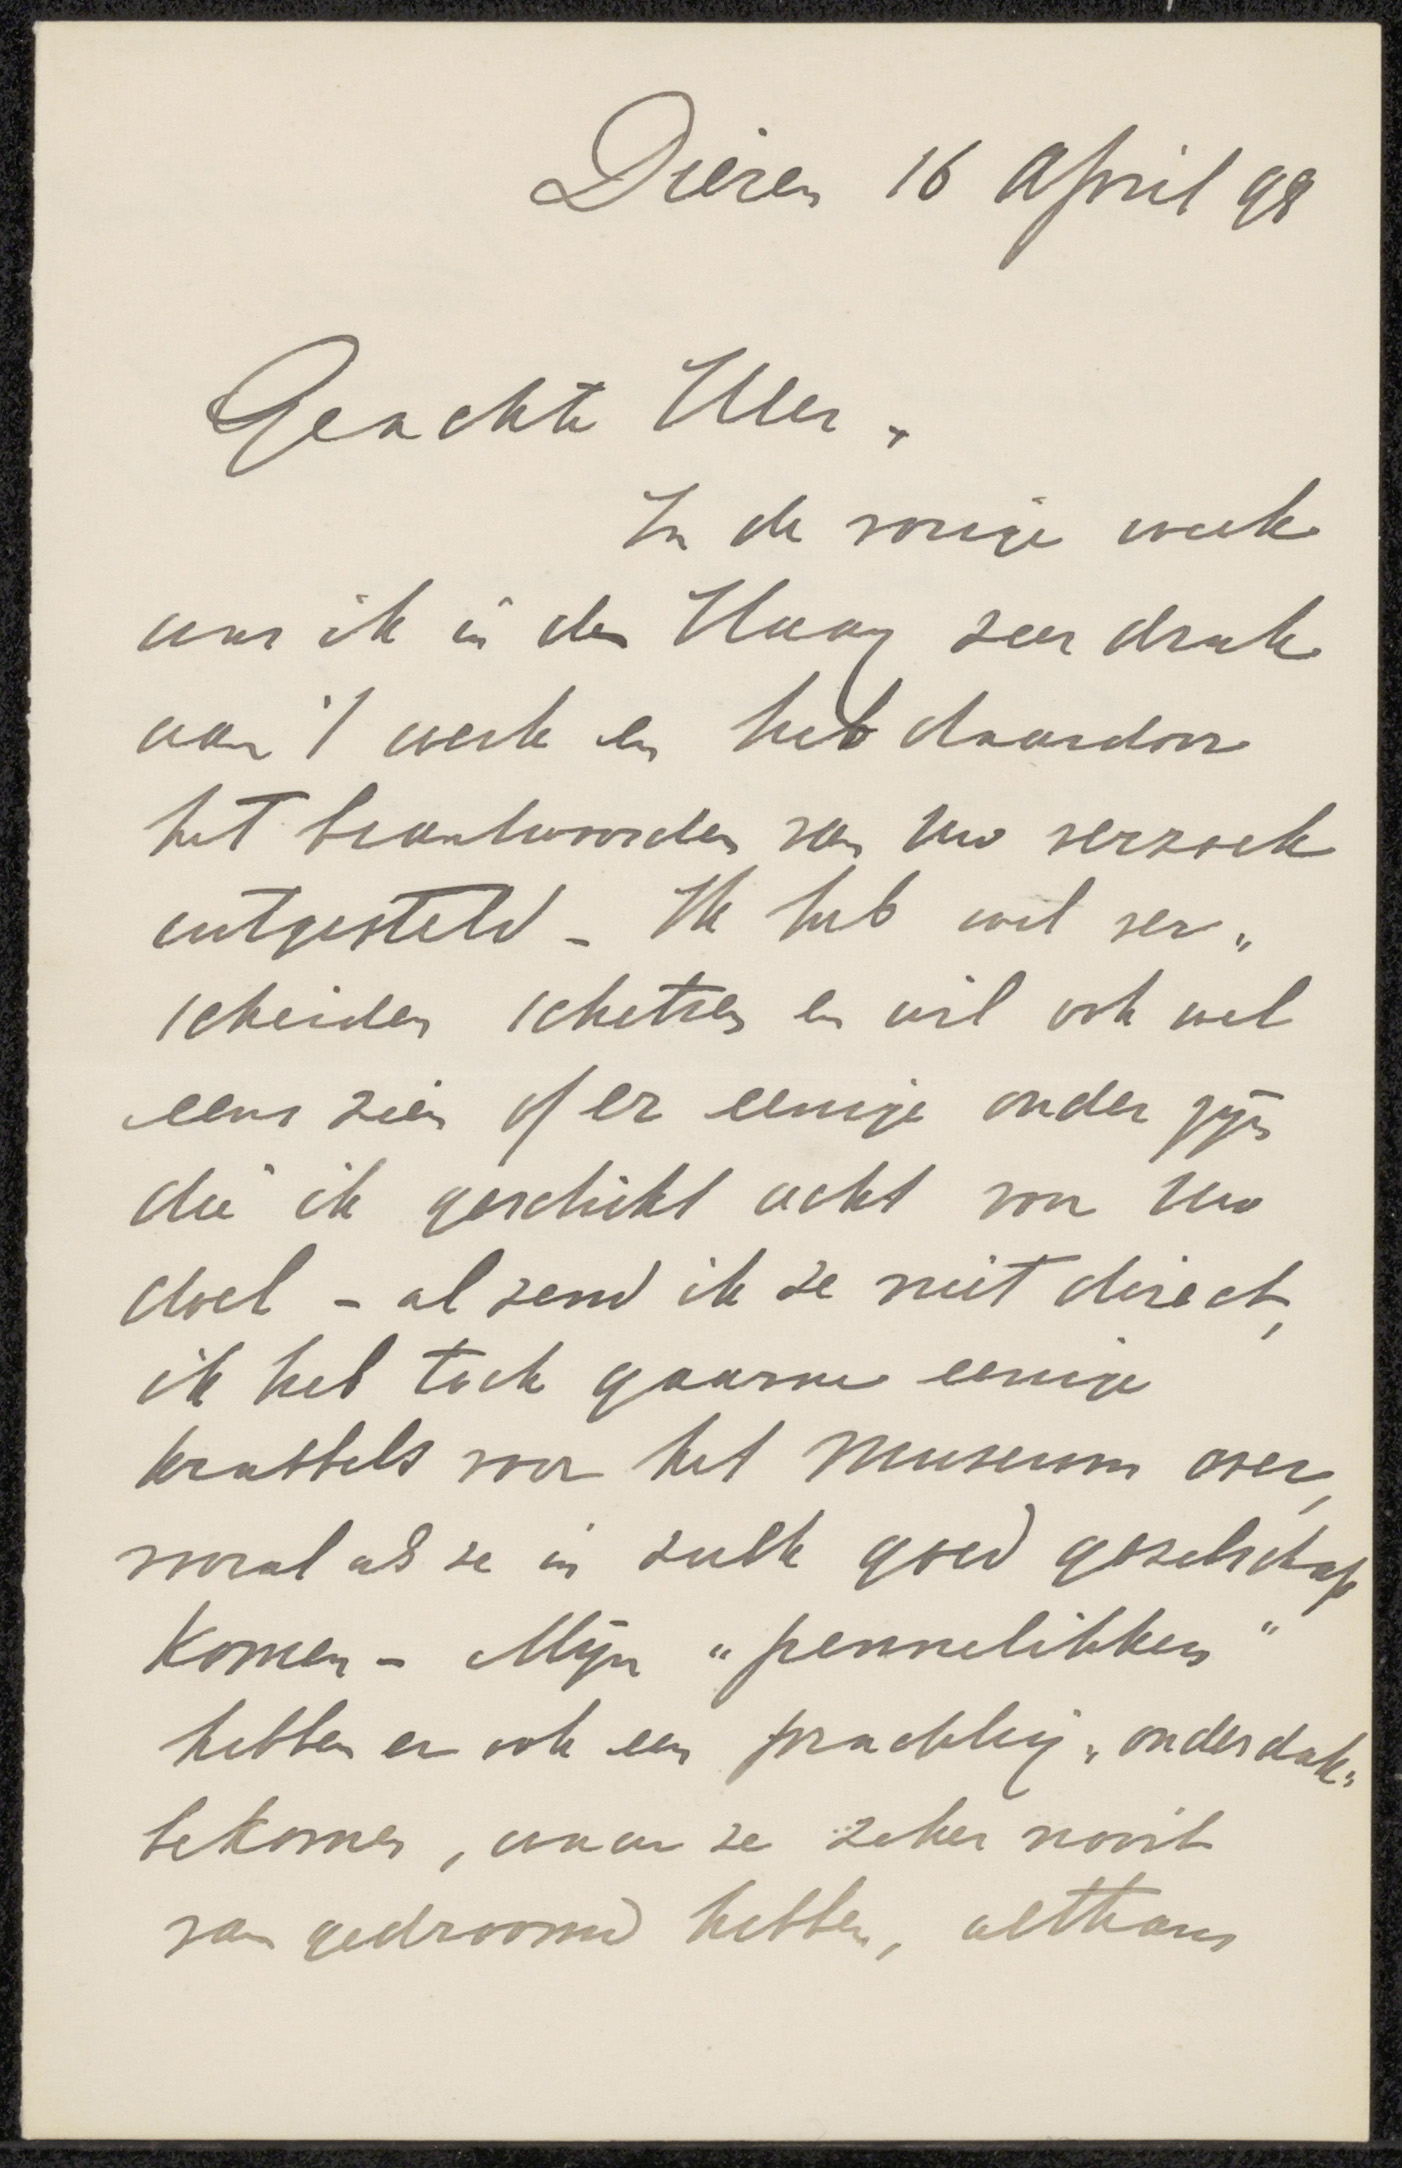 Dieren 16 April 98
Geachte Heer,
In de vorige week
was ik in den Haag zeer druk
aan 't werk en heb daardoor
het beantwoorden van Uw verzoek
uitgesteld - Ik heb wel ver„
scheiden schetsen en wil ook wel
eens zien of er eenige onder zijn
die ik geschikt acht voor Uw
doel - al zend ik ze niet direct,
ik heb toch gaarne eenige
krabbels voor het Museum over,
vooral als ze in zulk goed gezelschap
komen - Mijn "pennelikkers"
hebben er ook een prachtig „onderdak"
bekomen, waar ze zeker nooit
van gedroomd hebben, althans